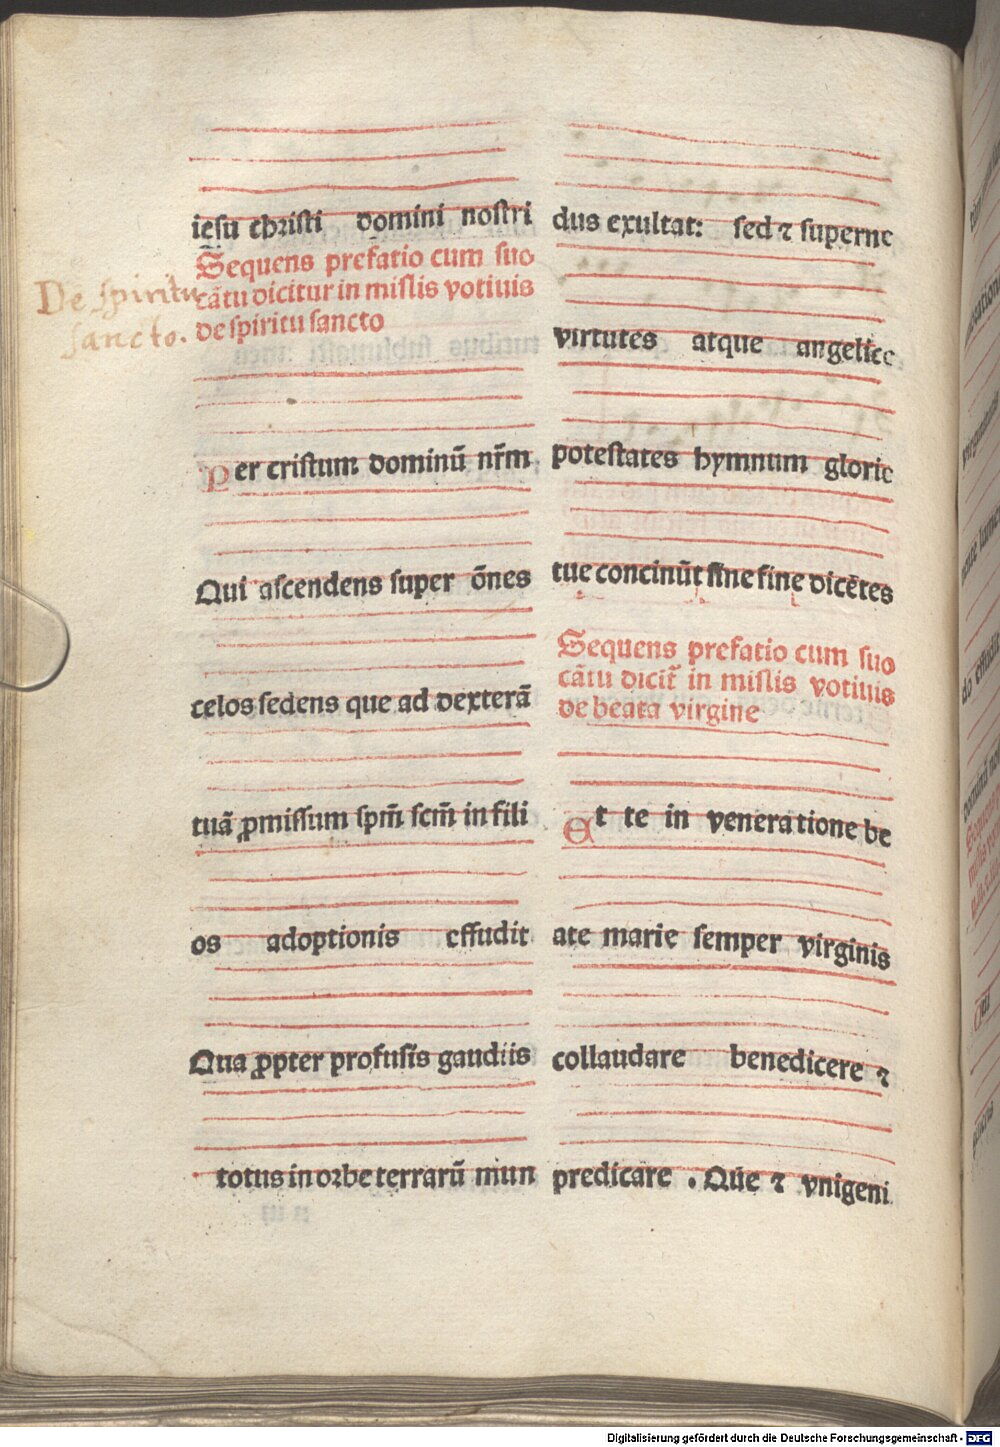 iesu christi domini nostri
Sequens prefatio cum suo
cãtu dicitur in missis votiuis
de spiritu sancto
De spiritu
sancto.
Per cristum dominũ nr̃m
Qui ascendens super õnes
celos sedens que ad dexterã
tuã ꝓmissum spm̃ scm̃ in fili
os adoptionis effudit
Qua ꝓpter profusis gaudiis
totus in orbe terrarũ mun
dus exultat: sed ⁊ superne
virtutes atque angelice
potestates hymnum glorie
tue concinũt sine fine dicẽtes
Sequens prefatio cum suo
cãtu dicit̃ in missis votiuis
de beata virgine
Et te in veneratione be
ate marie semper virginis
collaudare benedicere ⁊
predicare . Q̃ue ⁊ vnigeni
Digitalisierung gefördert durch die Deutsche Forschungsgemeinschaft - DFG